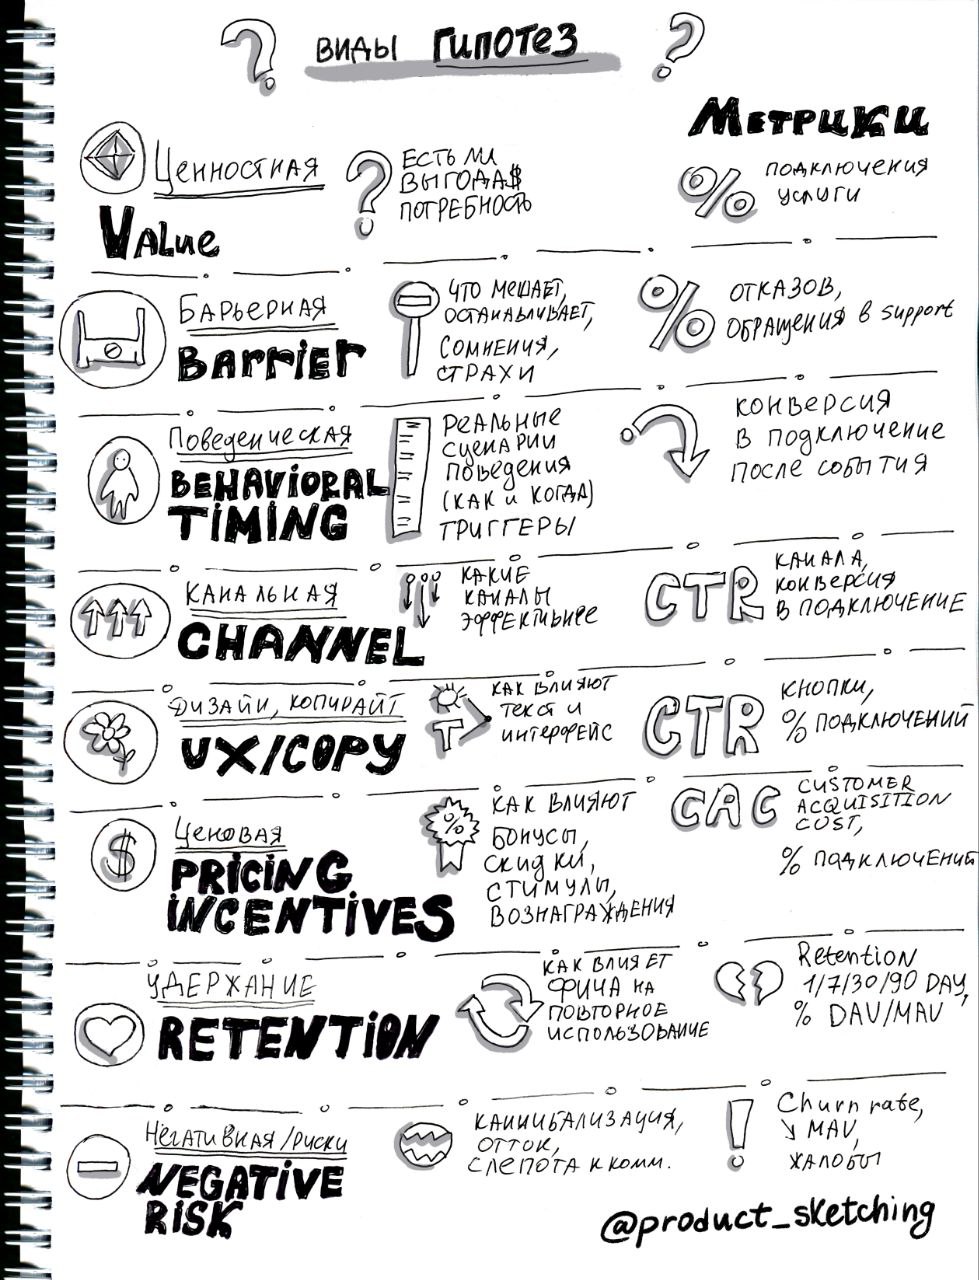 ? виды Гипотез ?
Метрики
Ценностная
Value
? ЕСТЬ ЛИ
ВЫГОДА$
ПОТРЕБНОСТЬ
% подключения
услуги
Барьерная
Barrier
ЧТО МЕШАЕТ,
ОСТАНАВЛИВАЕТ,
СОМНЕНИЯ,
СТРАХИ
% ОТКАЗОВ,
ОБРАЩЕНИЯ в support
Поведенческая
BEHAVIORAL
TIMING
РЕАЛЬНЫЕ
СЦЕНАРИИ
ПОВЕДЕНИЯ
(КАК и КОГДА)
ТРИГГЕРЫ
КОНВЕРСИЯ
В ПОДКЛЮЧЕНИЕ
ПОСЛЕ СОБЫТИЯ
КАНАЛЬНАЯ
CHANNEL
КАКИЕ
КАНАЛЫ
ЭФФЕКТИВНЕЕ
CTR КАНАЛА,
КОНВЕРСИЯ
В ПОДКЛЮЧЕНИЕ
ДИЗАЙН, КОПИРАЙТ
UX/COPY
T
КАК ВЛИЯЮТ
ТЕКСТ И
ИНТЕРФЕЙС
CTR КНОПКИ,
% ПОДКЛЮЧЕНИЙ
$
Ценовая
PRICING
INCENTIVES
%
КАК ВЛИЯЮТ
БОНУСЫ,
СКИДКИ,
СТИМУЛЫ,
ВОЗНАГРАЖДЕНИЯ
CAC CUSTOMER
ACQUISITION
COST,
% ПОДКЛЮЧЕНИЙ
УДЕРЖАНИЕ
RETENTION
КАК ВЛИЯЕТ
ФИЧА НА
ПОВТОРНОЕ
ИСПОЛЬЗОВАНИЕ
Retention
1/7/30/90 DAY,
% DAV/MAV
Негативная/риски
NEGATIVE
RISK
КАННИБАЛИЗАЦИЯ,
ОТТОК,
СЛЕПОТА К КОММ.
! Churn rate,
↘ MAV,
ЖАЛОБЫ
@product_sketching